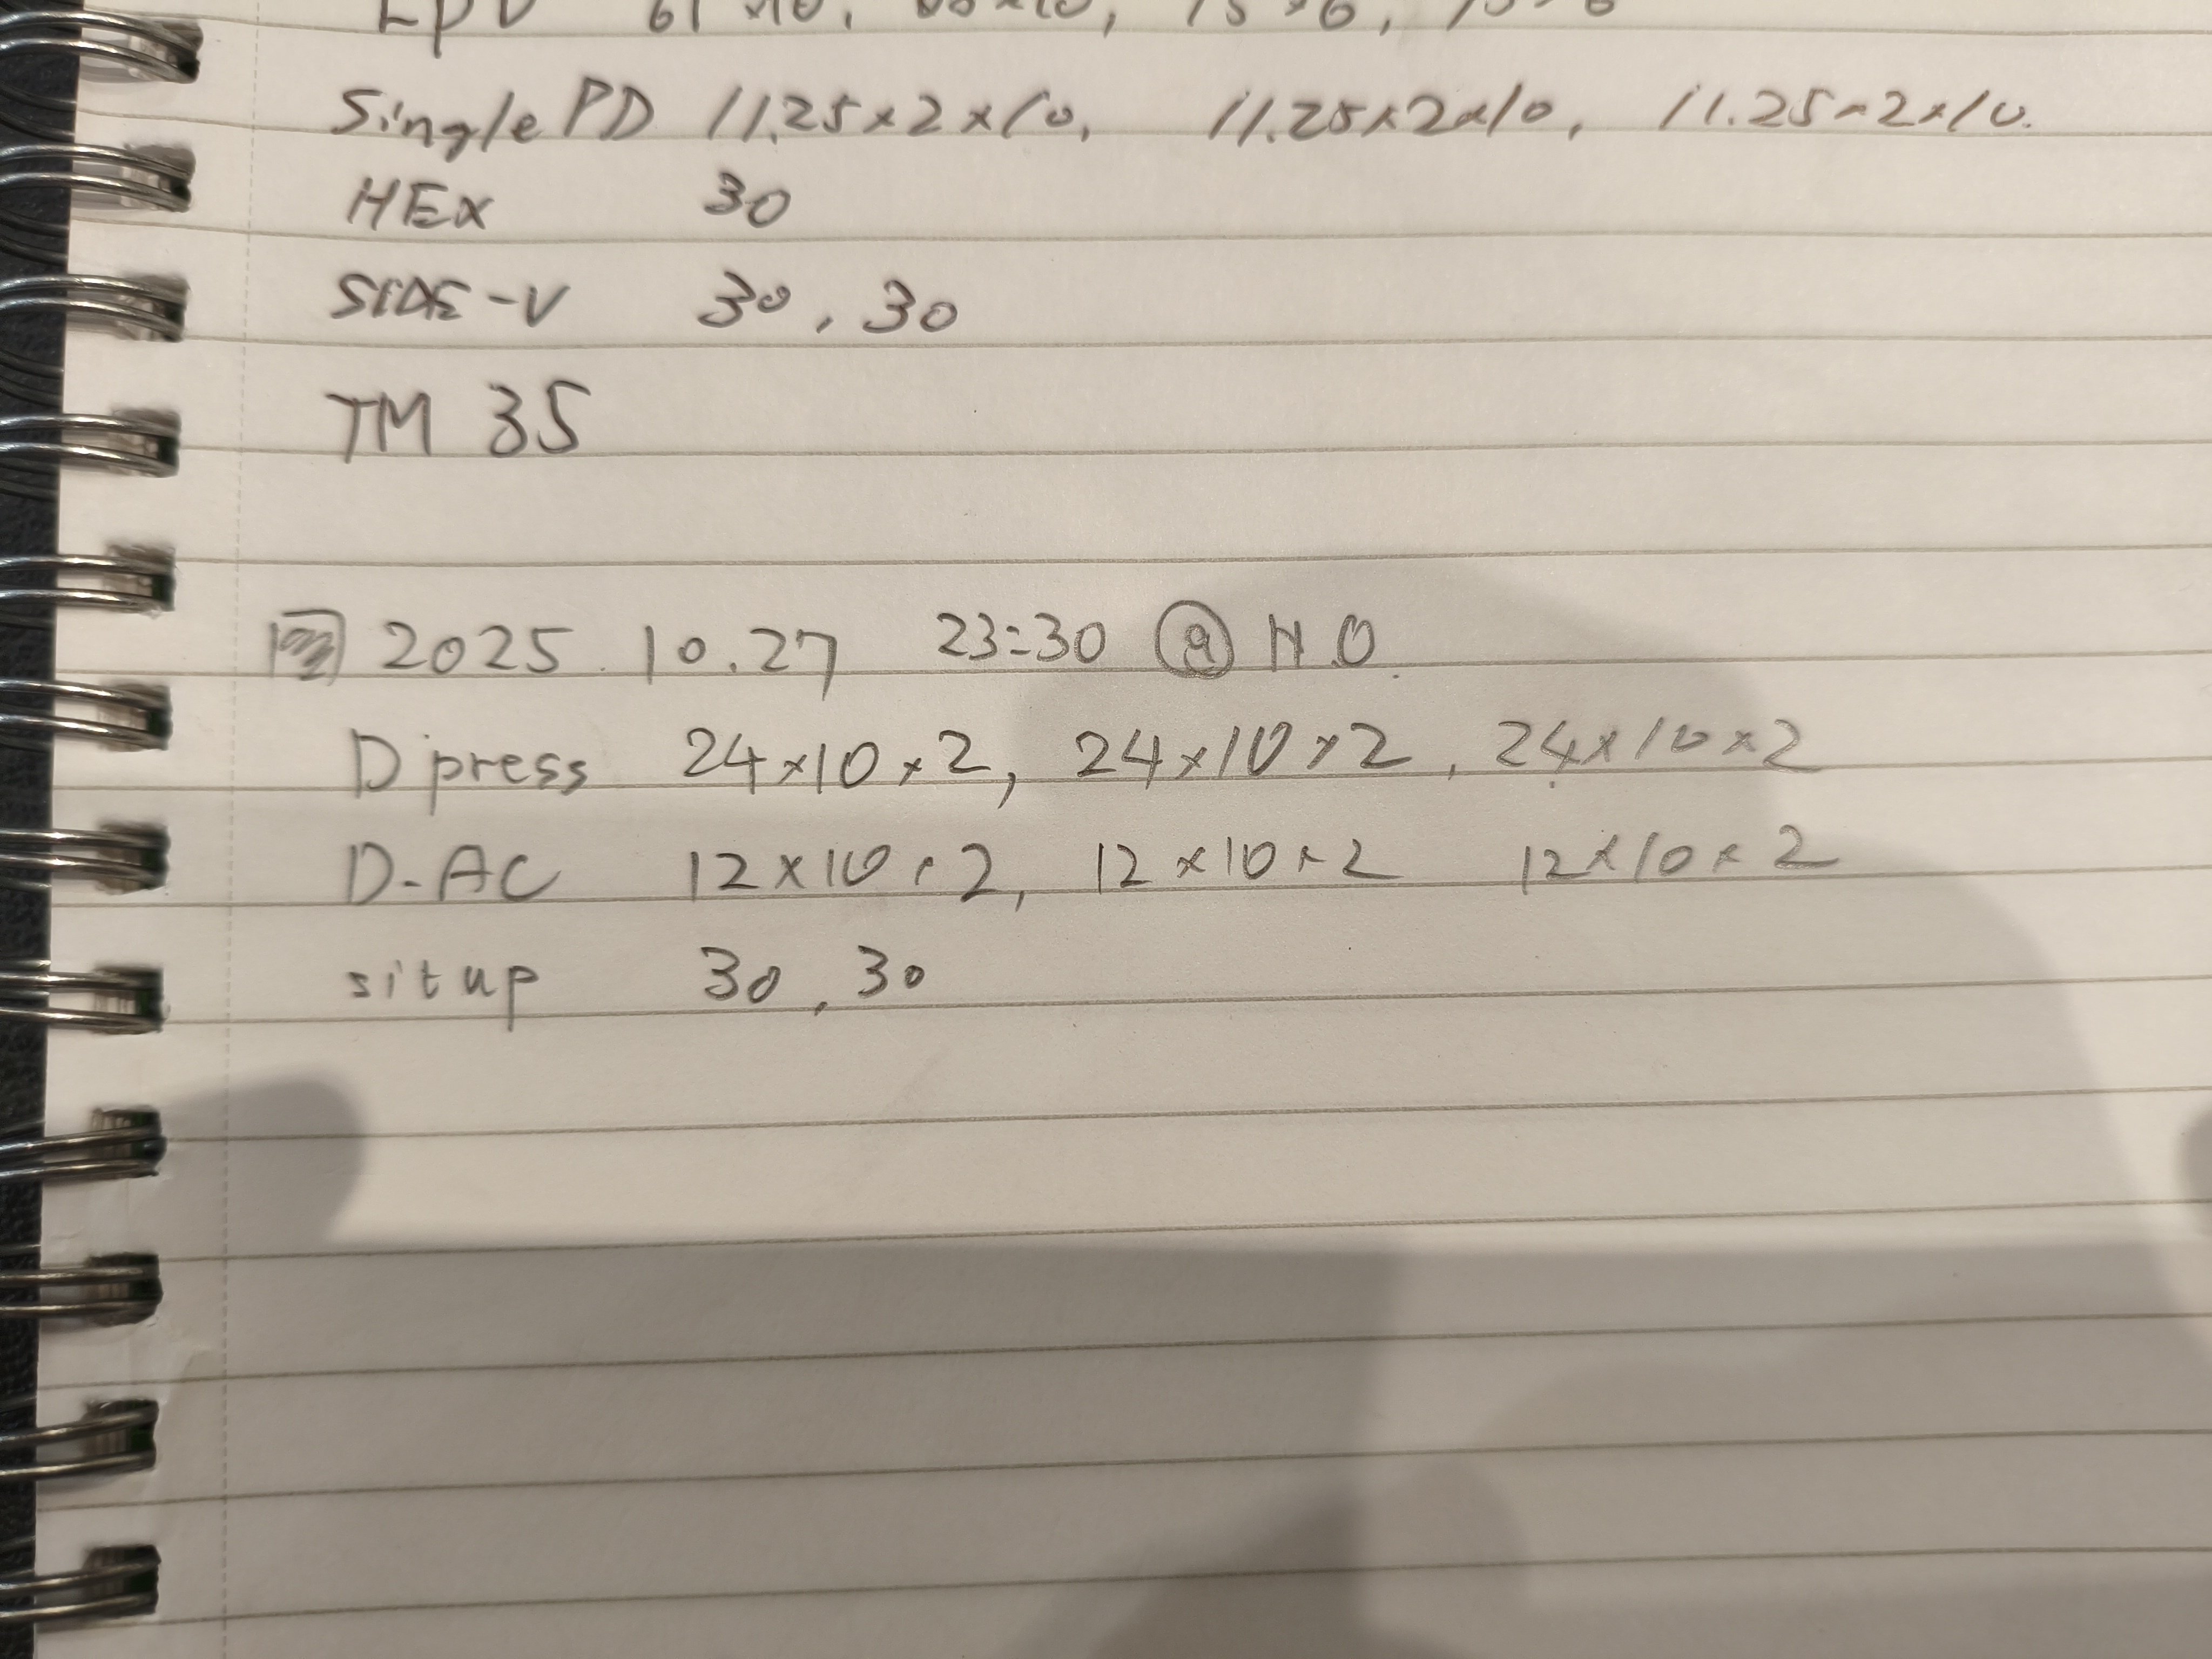 Single PD 11.25x2x10, 11.25x2x10, 11.25x2x10.
HEX 30
SIDE-V 30, 30
TM 35
2025. 10.27 23:30 @ H.O.
D press 24x10x2, 24x10x2, 24x10x2
D-AC 12x10x2, 12x10x2 12x10x2
sit up 30, 30